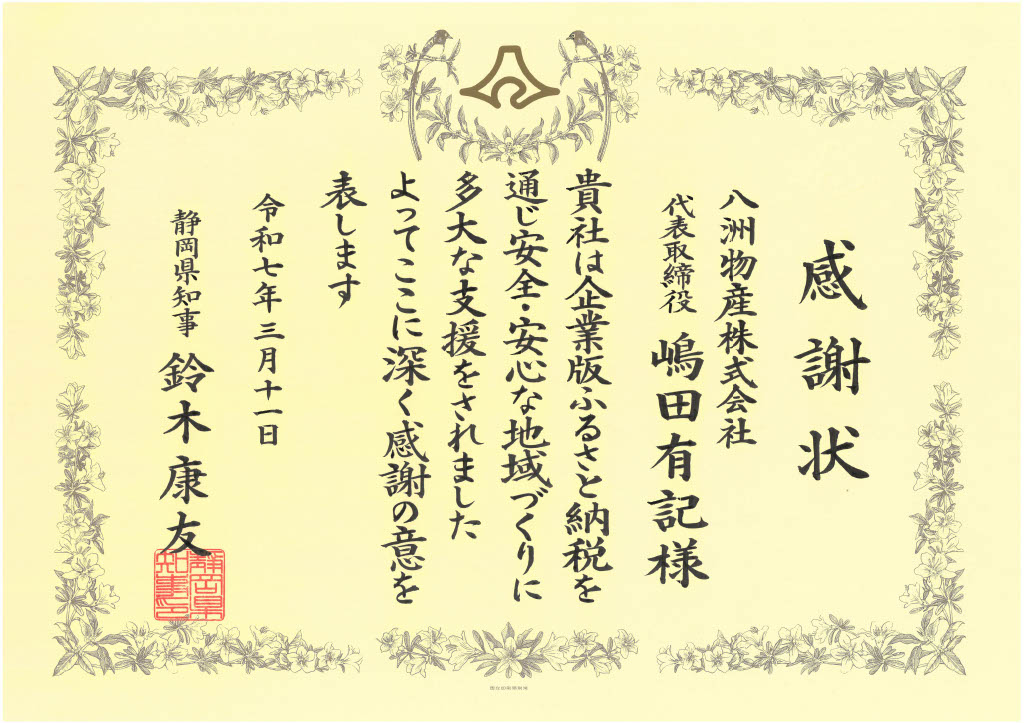 感謝状
八洲物産株式会社
代表取締役 嶋田有記様
貴社は企業版ふるさと納税を
通じ安全・安心な地域づくりに
多大な支援をされました
よってここに深く感謝の意を
表します
令和七年三月十一日
静岡県知事 鈴木康友
静岡県
知事之印